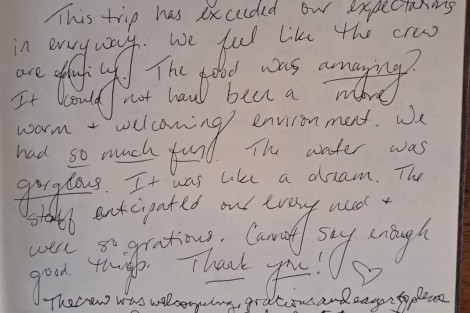 This trip has exceeded our expectations
in every way. We feel like the crew
are family. The food was amazing!
It could not have been a more
warm + welcoming environment. We
had so much fun! The water was
gorgeous. It was like a dream. The
staff anticipated our every need +
were so gratious. Cannot say enough
good things. Thank you! ♡
The crew was welcoming, gratious and eager to please